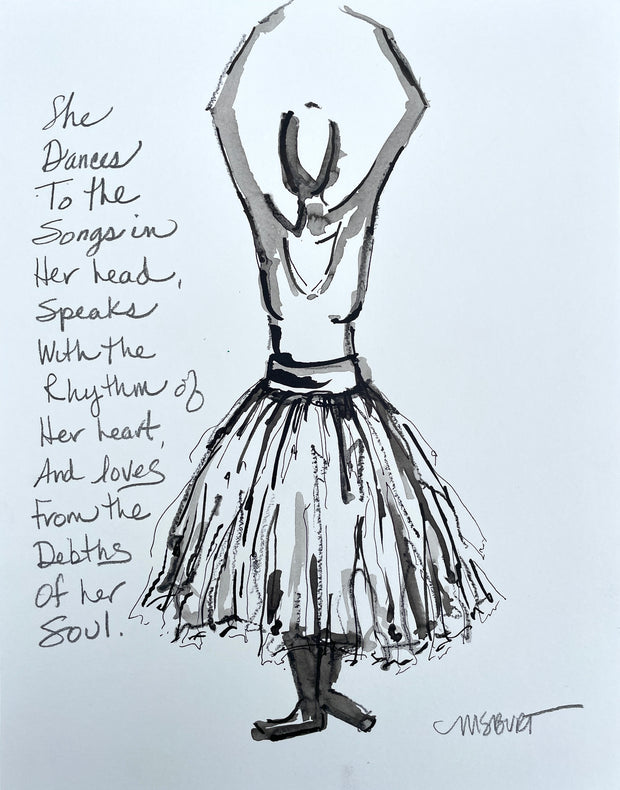 She
Dances
To the
Songs in
Her head,
Speaks
With the
Rhythm of
Her heart,
And loves
From the
Debths
Of her
Soul.